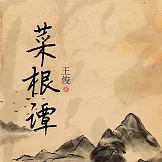 菜根谭
王俊